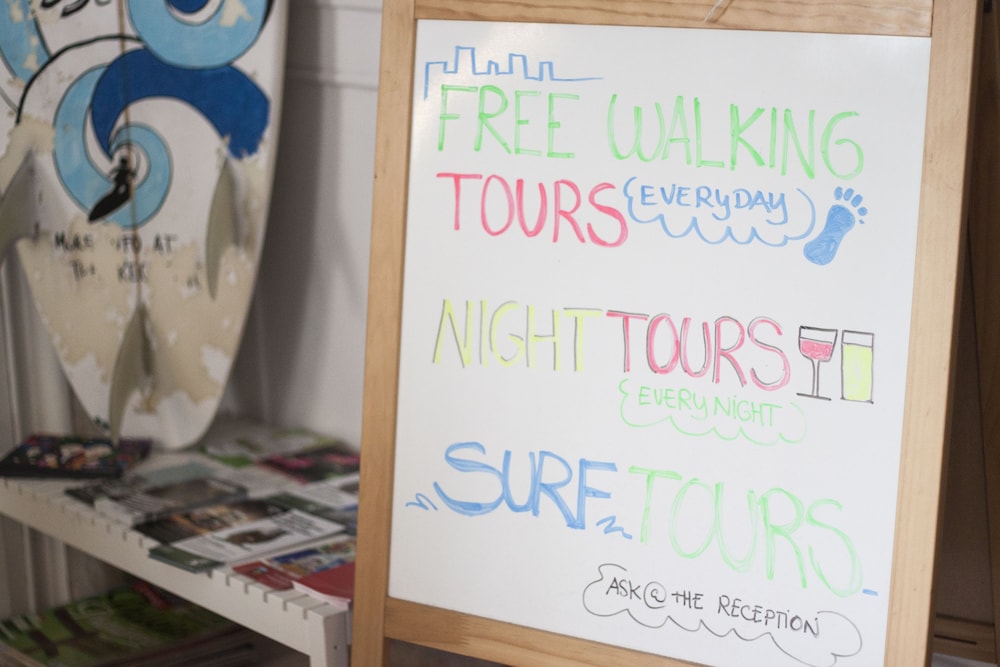 FREE WALKING
TOURS (EVERYDAY)
NIGHT TOURS
(EVERY NIGHT)
SURF TOURS
ASK @ THE RECEPTION
INFO AT